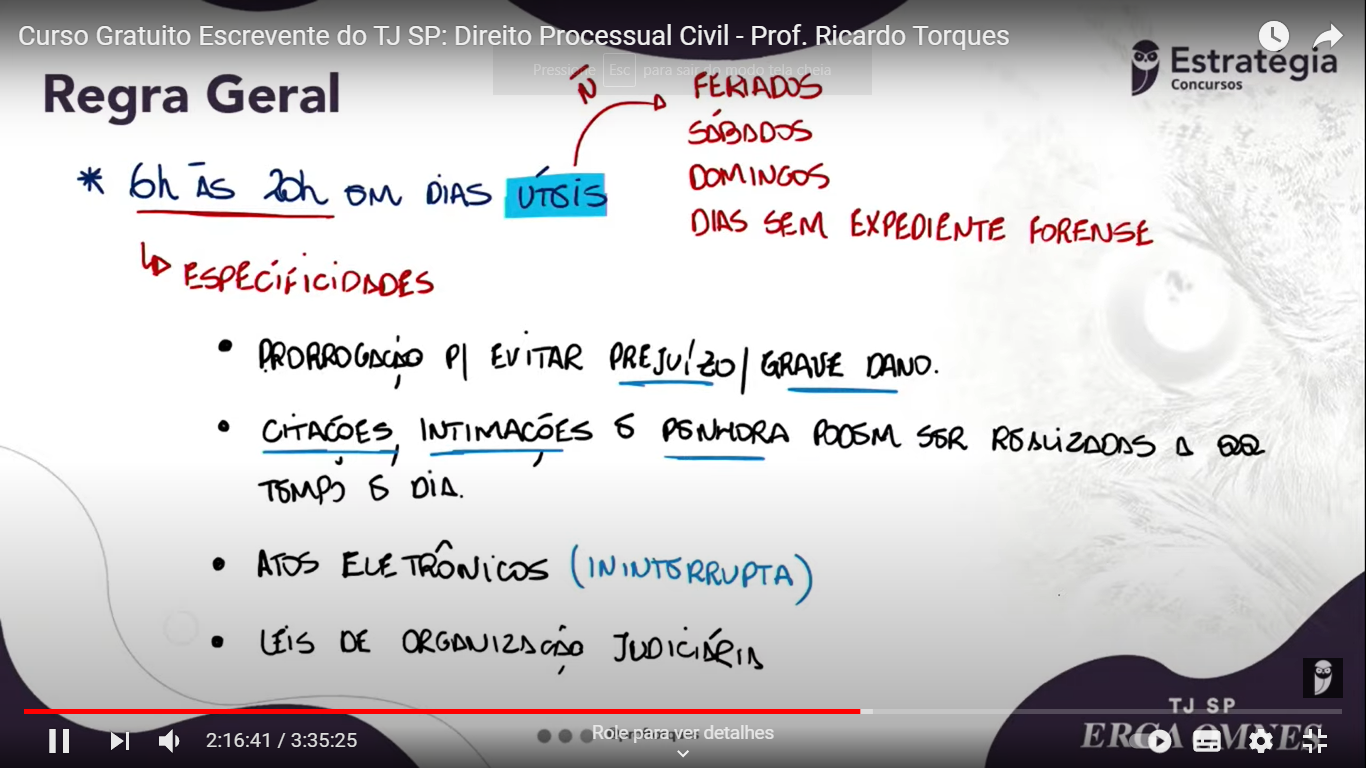 Curso Gratuito Escrevente do TJ SP: Direito Processual Civil - Prof. Ricardo Torques
Pressione Esc para sair do modo tela cheia
Estratégia
Concursos
Regra Geral
Ñ
FERIADOS
SÁBADOS
DOMINGOS
DIAS SEM EXPEDIENTE FORENSE
* 6h ÀS 20h EM DIAS ÚTEIS
ESPECIFICIDADES
• PRORROGAÇÃO P/ EVITAR PREJUÍZO/GRAVE DANO.
• CITAÇÕES, INTIMAÇÕES E PENHORA PODEM SER REALIZADAS A QQ
TEMPO E DIA.
• ATOS ELETRÔNICOS (ININTERRUPTA)
• LEIS DE ORGANIZAÇÃO JUDICIÁRIA
TJ SP
ERGA OMNES
Role para ver detalhes
2:16:41 / 3:35:25